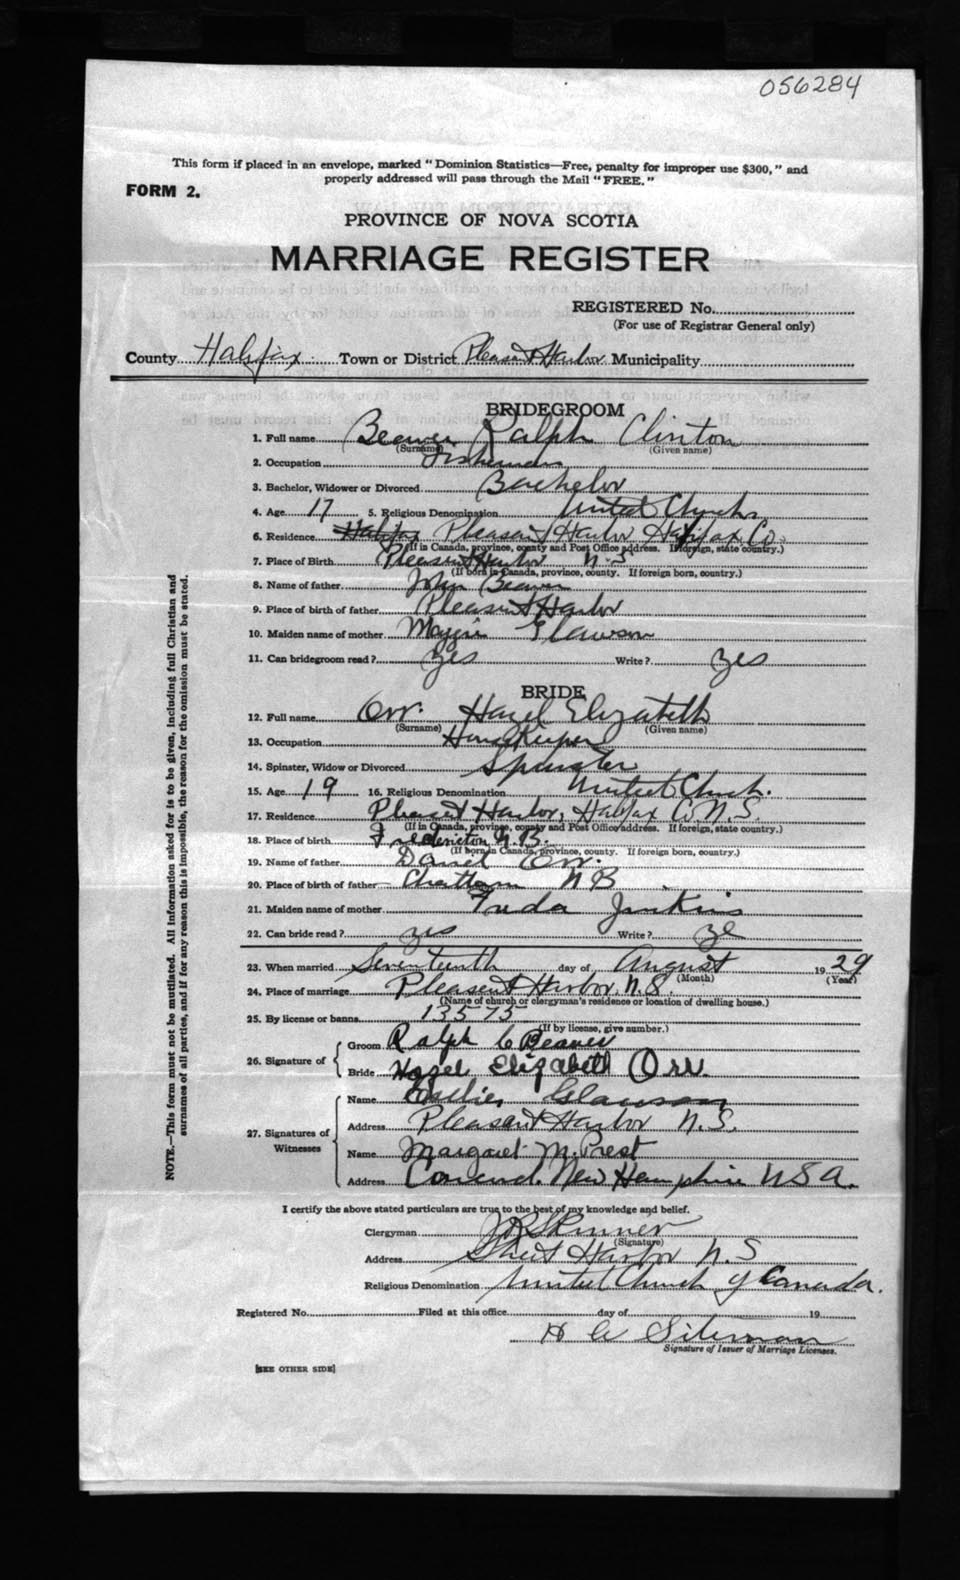 056284
This form if placed in an envelope, marked "Dominion Statistics—Free, penalty for improper use $300," and
properly addressed will pass through the Mail "FREE."
FORM 2.
PROVINCE OF NOVA SCOTIA
MARRIAGE REGISTER
REGISTERED No.
(For use of Registrar General only)
County Halifax Town or District Pleasant Harbor Municipality
BRIDEGROOM
1. Full name Beaver Ralph Clinton
(Surname) (Given name)
2. Occupation Fisherman
3. Bachelor, Widower or Divorced Bachelor
4. Age 17 5. Religious Denomination United Church
6. Residence Halifax Pleasant Harbor Halifax Co.
(If in Canada, province, county and Post Office address. If foreign, state country.)
7. Place of Birth Pleasant Harbor N S
(If born in Canada, province, county. If foreign born, country.)
8. Name of father John Beaver
9. Place of birth of father Pleasant Harbor
10. Maiden name of mother Maggie Glawson
11. Can bridegroom read? yes Write? yes
BRIDE
12. Full name Orr. Hazel Elizabeth
(Surname) (Given name)
13. Occupation Housekeeper
14. Spinster, Widow or Divorced Spinster
15. Age 19 16. Religious Denomination United Church.
17. Residence Pleasant Harbor, Halifax Co. N.S.
(If in Canada, province, county and Post Office address. If foreign, state country.)
18. Place of birth Fredericton N.B.
(If born in Canada, province, county. If foreign born, country.)
19. Name of father Daniel Orr.
20. Place of birth of father Chatham N B
21. Maiden name of mother Freda Jinkins
22. Can bride read? yes Write? ye
23. When married Seventeenth day of August 1929
(Month) (Year)
24. Place of marriage Pleasant Harbor. N.S.
(Name of church or clergyman's residence or location of dwelling house.)
25. By license or banns 13575
(If by license, give number.)
26. Signature of Groom Ralph C Beaver
Bride Hazel Elizabeth Orr.
27. Signatures of Witnesses Name Glawson
Address Pleasant Harbor N.S.
Name Margaret M. Prest
Address Concord. New Hampshire USA.
I certify the above stated particulars are true to the best of my knowledge and belief.
Clergyman J R Skinner
(Signature)
Address Sheet Harbor N. S
Religious Denomination United Church of Canada.
Registered No. Filed at this office day of 19
H Silverman
Signature of Issuer of Marriage Licenses.
[SEE OTHER SIDE]
NOTE.—This form must not be mutilated. All information asked for is to be given, including full Christian and
surnames of all parties, and if for any reason this is impossible, the reason for the omission must be stated.